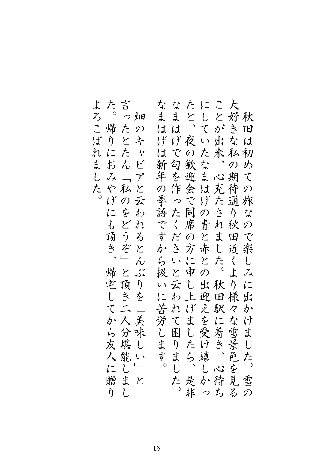 秋田は初めての旅なので楽しみに出かけました。雪の
大好きな私の期待通り秋田近くより様々な雪景色を見る
ことが出来、心充たされました。秋田駅に着き、心待ち
にしていたなまはげの青と赤との出迎えを受け嬉しかっ
たと、夜の歓迎会で同席の方に申し上げましたら、是非
なまはげで句を作ってくださいと云われて困りました。
なまはげは新年の季語ですから扱いに苦労します。
畑のキャビアと云われるとんぶりを「美味しい」と
言ったとたん「私のをどうぞ」と頂き二人分堪能しまし
た。帰りにおみやげにも頂き、帰宅してから友人に贈り
よろこばれました。
16